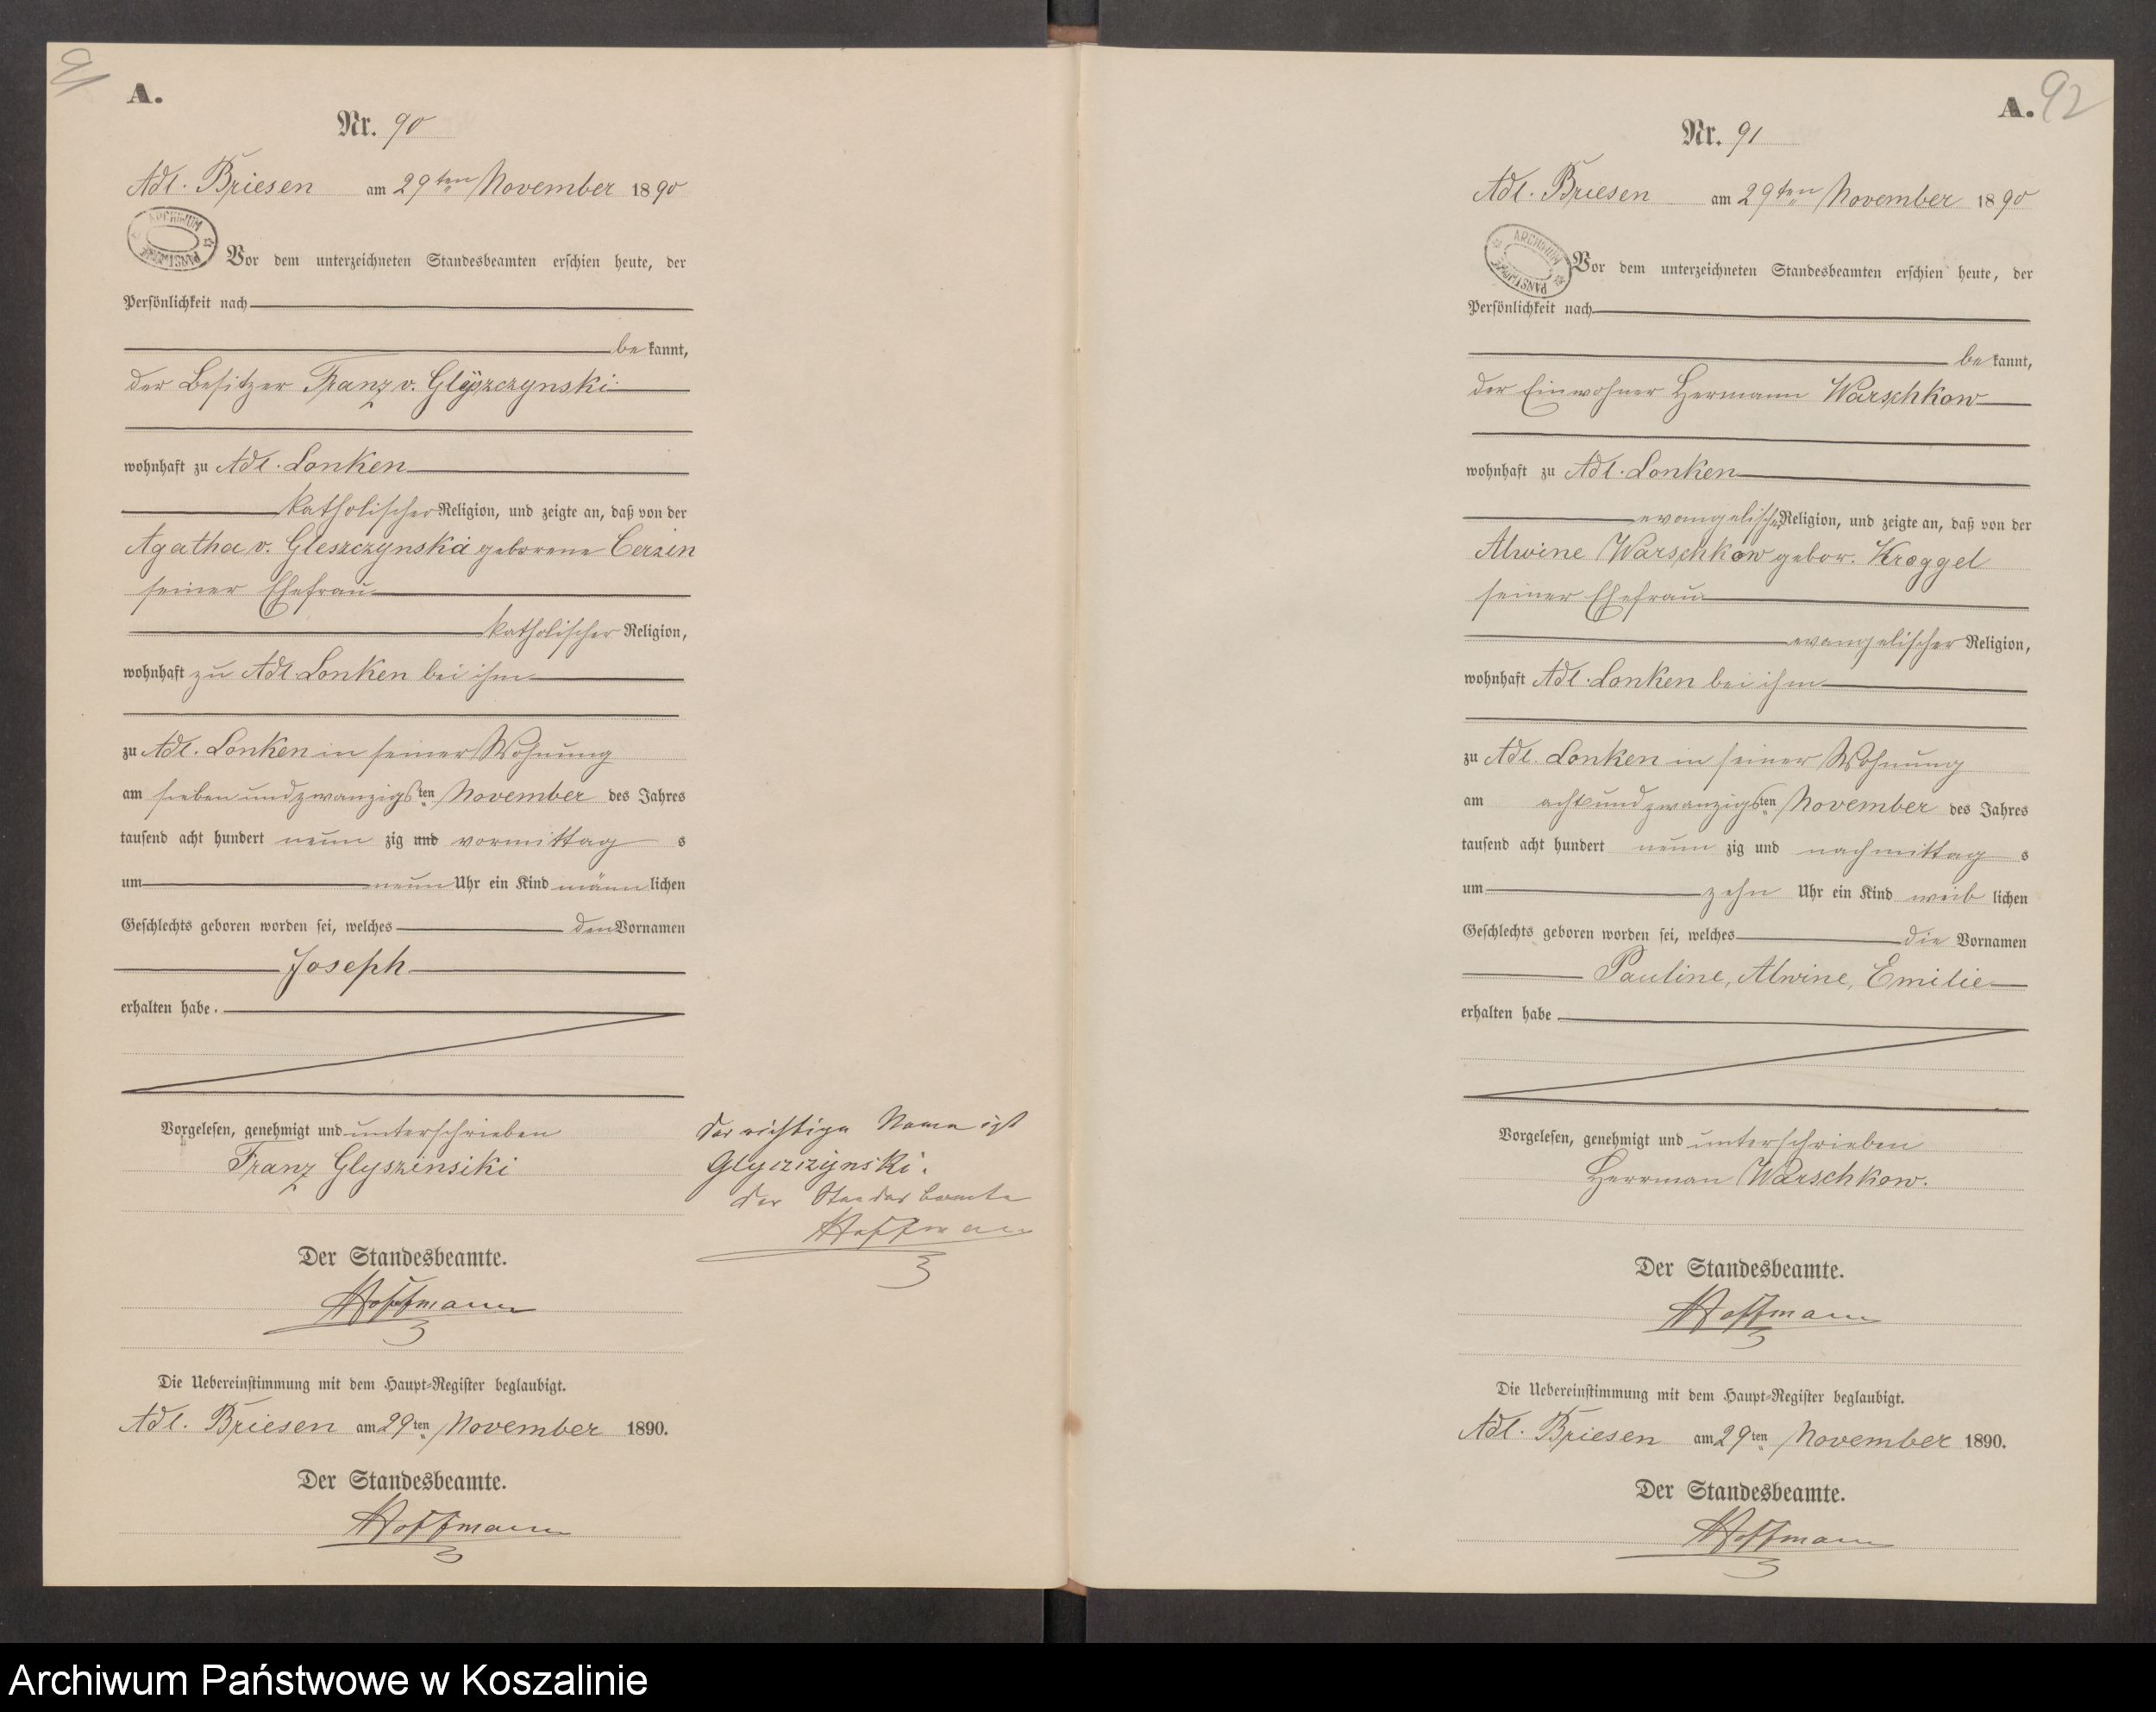 91
A.
Nr. 90
Adl. Briesen am 29ten November 1890
ARCHIWUM PAŃSTWOWE
Vor dem unterzeichneten Standesbeamten erschien heute, der
Persönlichkeit nach
be kannt,
der Besitzer Franz v.
wohnhaft zu Adl. Lonken
katholischer Religion, und zeigte an, daß von der
Agatha v. Gleszczynska geborene Cerzin
seiner Ehefrau
katholischer Religion,
wohnhaft zu Adl. Lonken bei ihm
zu Adl. Lonken in seiner Wohnung
am siebenundzwanzigsten November des Jahres
tausend acht hundert neun zig und vormittag s
um neun Uhr ein Kind männ lichen
Geschlechts geboren worden sei, welches den Vornamen
Joseph
erhalten habe.
Vorgelesen, genehmigt und unterschrieben
Franz Glyszinsiki
Der Standesbeamte.
Hoffmann
Die Uebereinstimmung mit dem Haupt-Register beglaubigt.
Adl. Briesen am 29ten November 1890.
Der Standesbeamte.
Hoffmann
der richtige Name ist
der Standesbeamte
Hoffmann
92
A.
Nr. 91
Adl. Briesen am 29ten November 1890
ARCHIWUM PAŃSTWOWE
Vor dem unterzeichneten Standesbeamten erschien heute, der
Persönlichkeit nach
be kannt,
der Einwohner Hermann Warschkow
wohnhaft zu Adl. Lonken
evangelischer Religion, und zeigte an, daß von der
Alwine Warschkow gebor. Kroggel
seiner Ehefrau
evangelischer Religion,
wohnhaft Adl. Lonken bei ihm
zu Adl. Lonken in seiner Wohnung
am achtundzwanzigsten November des Jahres
tausend acht hundert neun zig und nachmittag s
um zehn Uhr ein Kind weib lichen
Geschlechts geboren worden sei, welches die Vornamen
Pauline, Alwine, Emilie
erhalten habe
Vorgelesen, genehmigt und unterschrieben
Herrman Warschkow.
Der Standesbeamte.
Hoffmann
Die Uebereinstimmung mit dem Haupt-Register beglaubigt.
Adl. Briesen am 29ten November 1890.
Der Standesbeamte.
Hoffmann
Archiwum Państwowe w Koszalinie